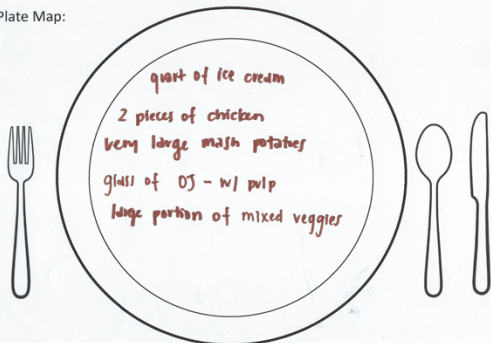 Plate Map:
quart of ice cream
2 pieces of chicken
very large mash potatoes
glass of OJ - w/ pulp
large portion of mixed veggies